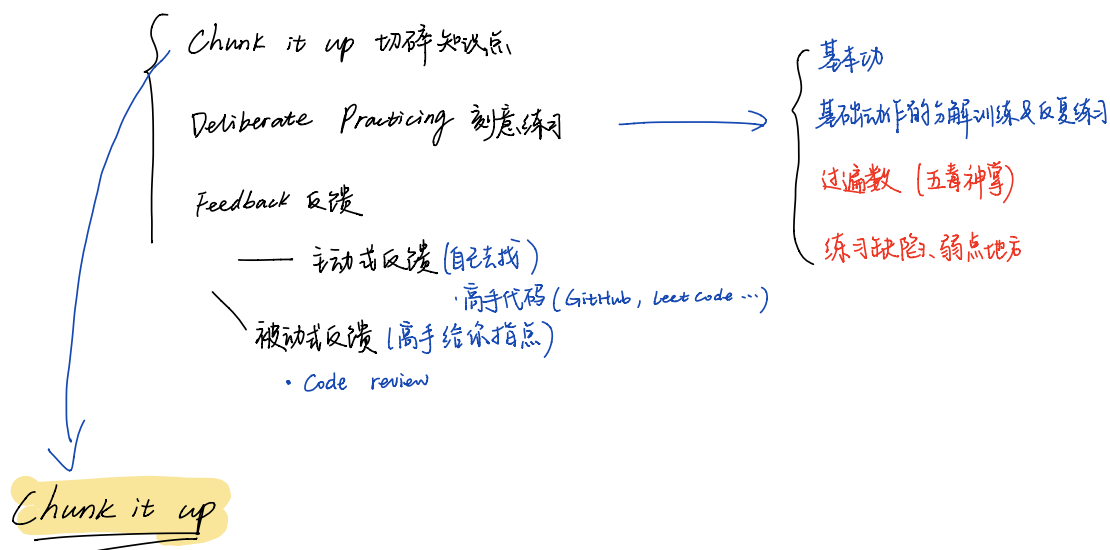 Chunk it up 切碎知识点
Deliberate Practicing 刻意练习
Feedback 反馈
主动式反馈 (自己去找)
· 高手代码 (GitHub, leetcode ...)
被动式反馈 (高手给你指点)
· Code review
基本功
基础动作的分解训练及反复练习
过遍数 (五毒神掌)
练习缺陷、弱点地方
Chunk it up